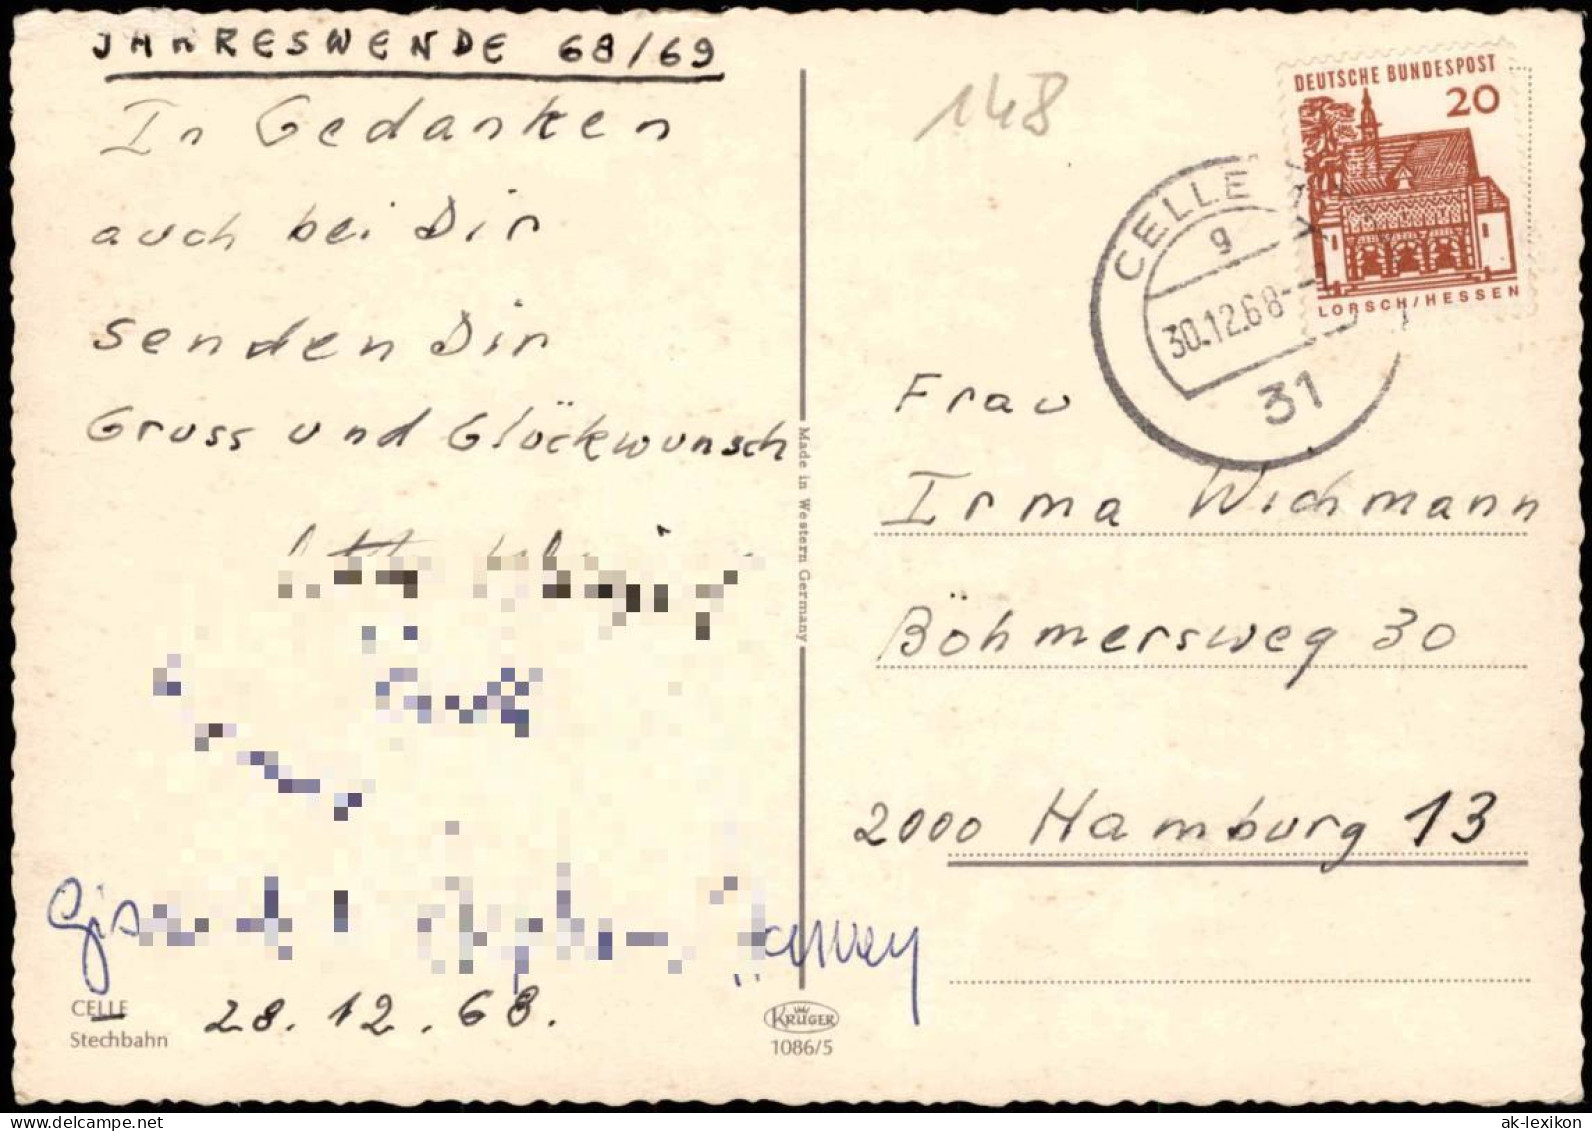 JAHRESWENDE 68/69
In Gedanken
auch bei Dir
senden Dir
Gruss und Glöckwunsch
28.12.68.
CELLE
Stechbahn
Made in Western Germany
KRÜGER
1086/5
148
DEUTSCHE BUNDESPOST
20
LORSCH/HESSEN
CELLE
g
30.12.68
31
Frau
Irma Wichmann
Böhmersweg 30
2000 Hamburg 13
ak-lexikon